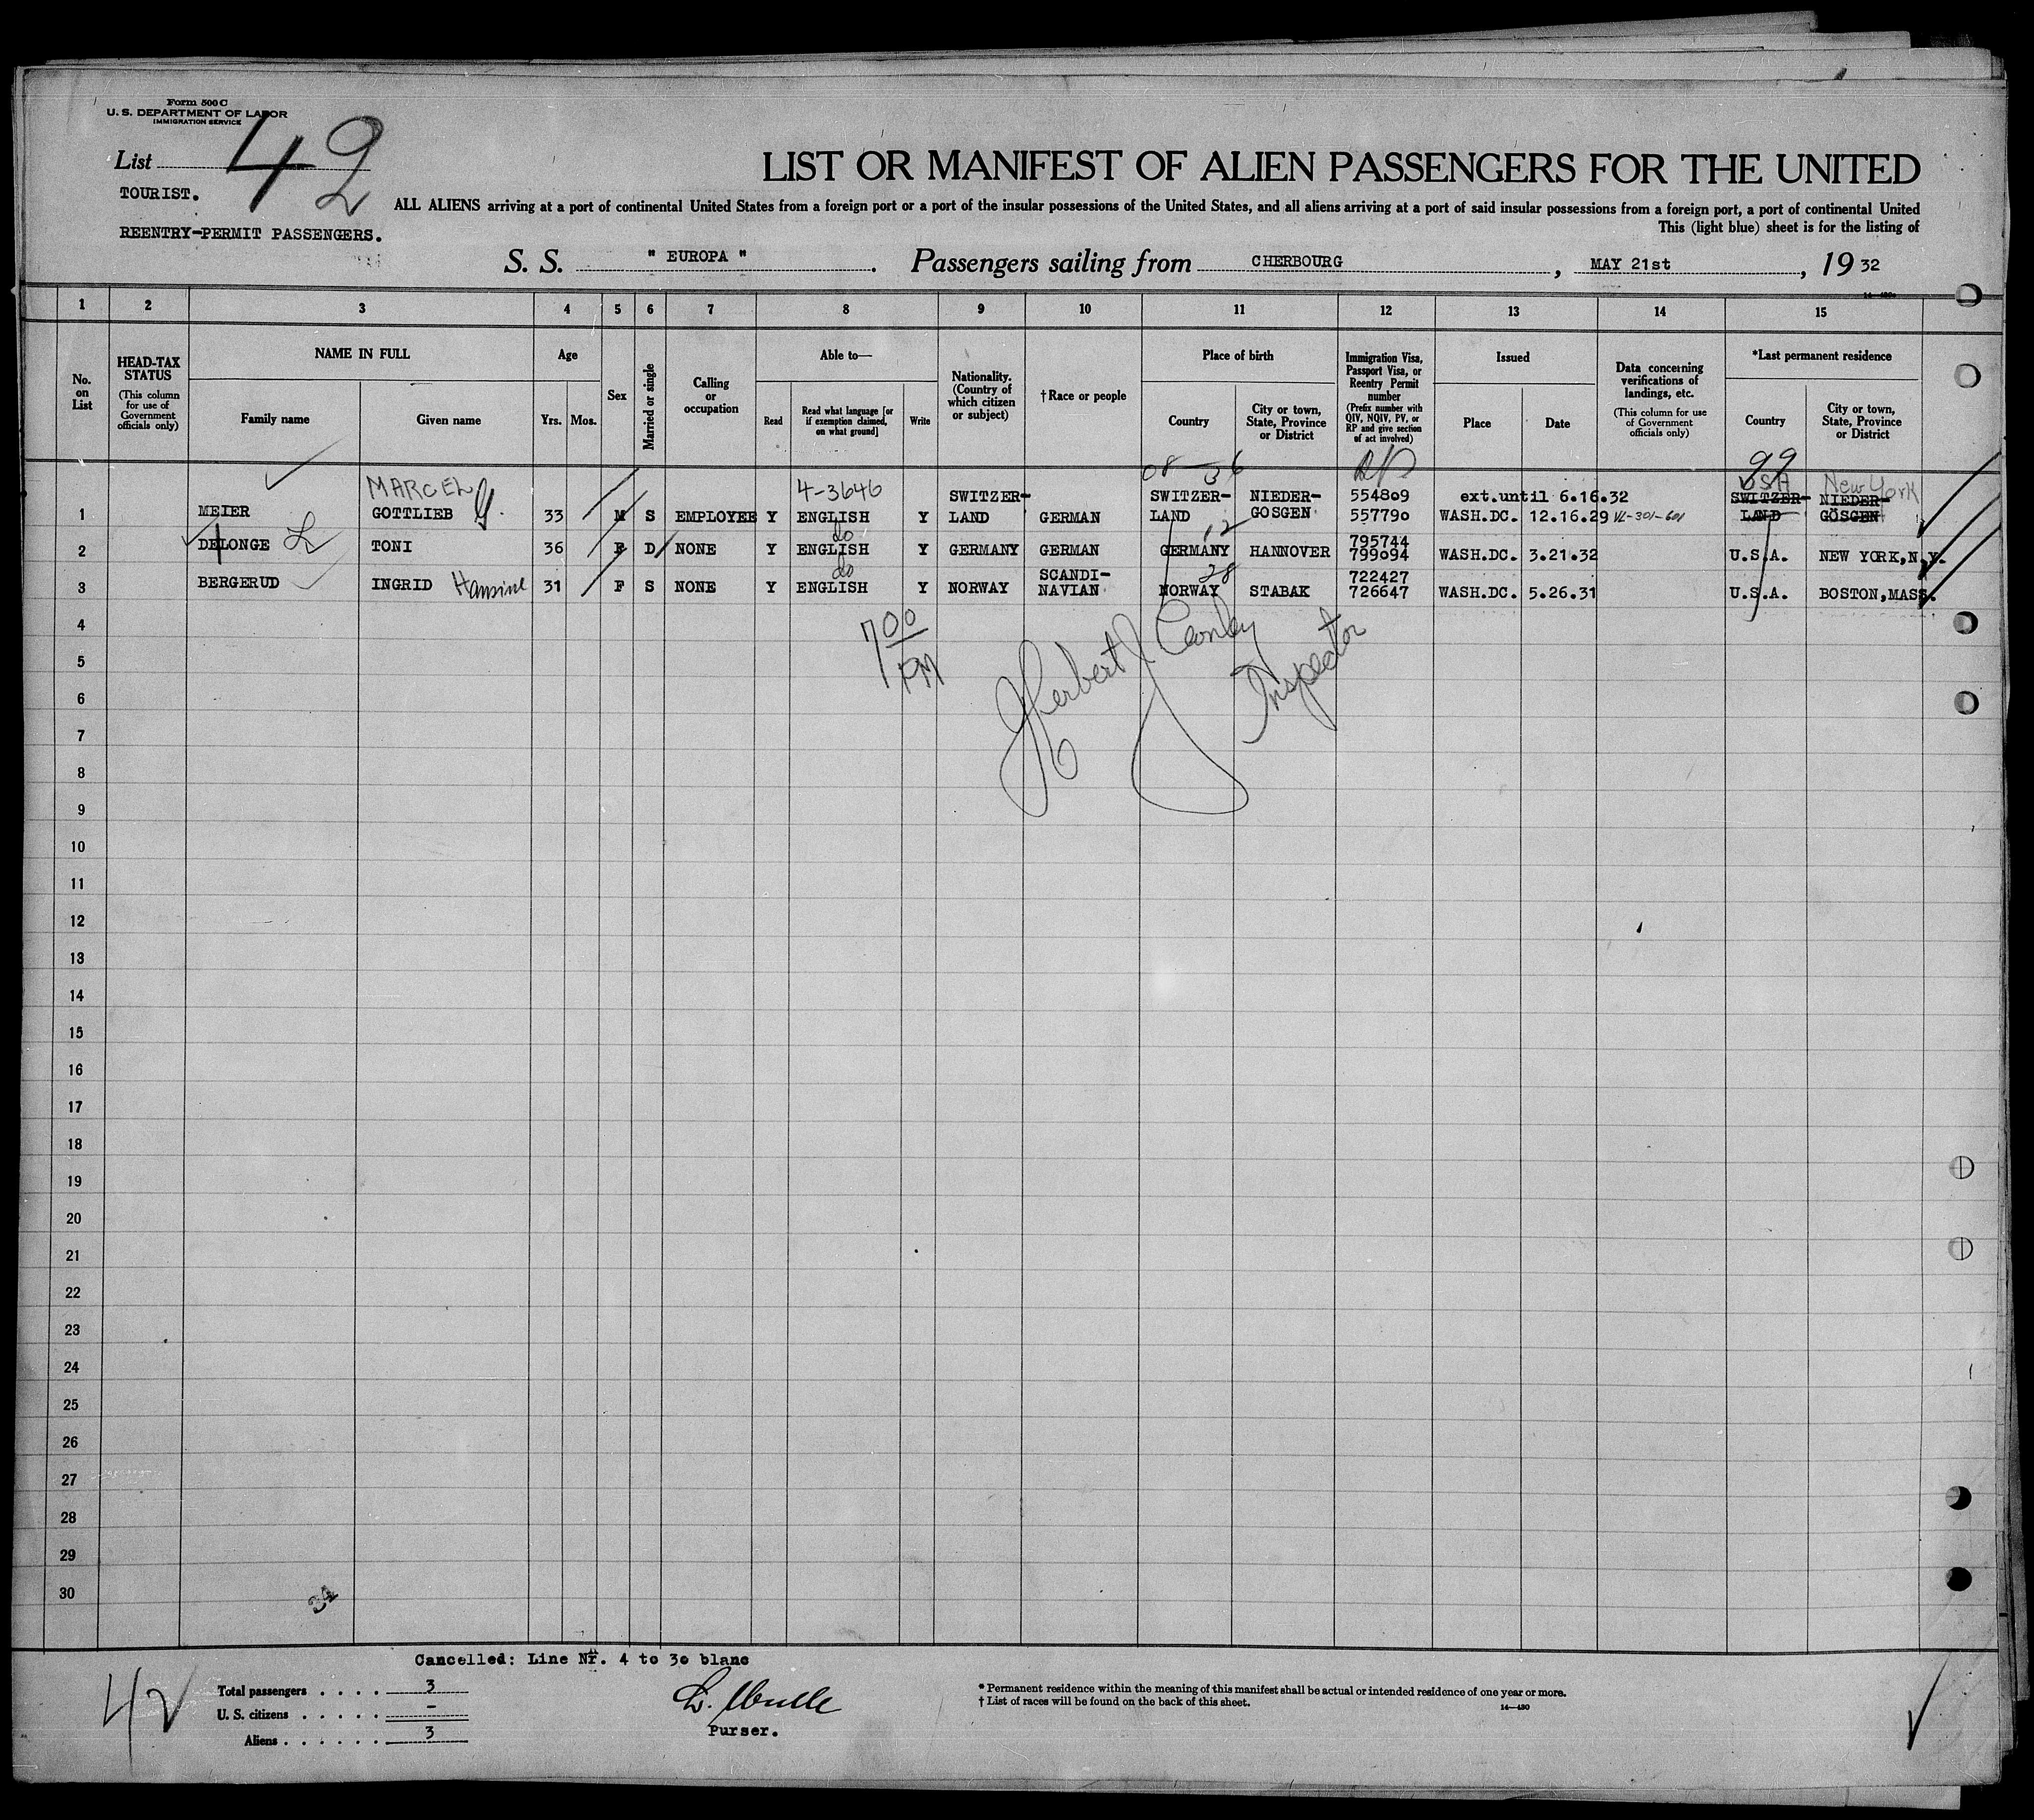 Form 500 C
U. S. DEPARTMENT OF LABOR
IMMIGRATION SERVICE
List 42
TOURIST.
REENTRY-PERMIT PASSENGERS.
LIST OR MANIFEST OF ALIEN PASSENGERS FOR THE UNITED
ALL ALIENS arriving at a port of continental United States from a foreign port or a port of the insular possessions of the United States, and all aliens arriving at a port of said insular possessions from a foreign port, a port of continental United
This (light blue) sheet is for the listing of
S. S. " EUROPA " . Passengers sailing from CHERBOURG , MAY 21st , 19 32
1 2 3 4 5 6 7 8 9 10 11 12 13 14 15
No. on List
HEAD-TAX STATUS (This column for use of Government officials only)
NAME IN FULL Family name Given name
Age Yrs. Mos.
Sex
Married or single
Calling or occupation
Able to— Read Read what language [or if exemption claimed, on what ground] Write
Nationality. (Country of which citizen or subject)
†Race or people
Place of birth Country City or town, State, Province or District
Immigration Visa, Passport Visa, or Reentry Permit number (Prefix number with QIV, NQIV, PV, or RP and give section of act involved)
Issued Place Date
Data concerning verifications of landings, etc. (This column for use of Government officials only)
*Last permanent residence Country City or town, State, Province or District
08 36 RP 99
MARCEL 4-3646 SWITZER- SWITZER- NIEDER- 554809 ext.until 6.16.32 USA SWITZER- New York NIEDER-
1 MEIER GOTTLIEB G. 33 M S EMPLOYEE Y ENGLISH Y LAND GERMAN LAND GOSGEN 557790 WASH.DC. 12.16.29 VL-301-601 LAND GÖSGEN
do 12 795744
2 DELONGE L TONI 36 F D NONE Y ENGLISH Y GERMANY GERMAN GERMANY HANNOVER 799094 WASH.DC. 3.21.32 U.S.A. NEW YORK,N.Y.
do SCANDI- 28 722427
3 BERGERUD INGRID Hansine 31 F S NONE Y ENGLISH Y NORWAY NAVIAN NORWAY STABAK 726647 WASH.DC. 5.26.31 U.S.A. BOSTON,MASS.
4
7 00 PM
Herbert J Conley Inspector
5
6
7
8
9
10
11
12
13
14
15
16
17
18
19
20
21
22
23
24
25
26
27
28
29
30
34
Cancelled: Line Nr. 4 to 30 blanc
42
Total passengers . . . . 3
U. S. citizens . . . . . -
Aliens . . . . . . 3
Purser.
* Permanent residence within the meaning of this manifest shall be actual or intended residence of one year or more.
† List of races will be found on the back of this sheet.
14—430